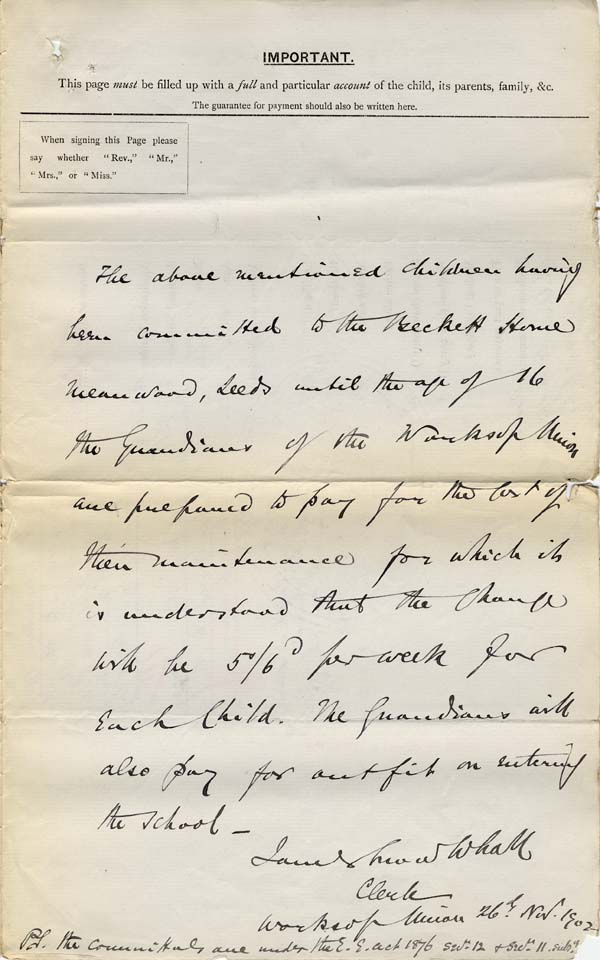 IMPORTANT.
This page must be filled up with a full and particular account of the child, its parents, family, &c.
The guarantee for payment should also be written here.
When signing this Page please
say whether "Rev.," "Mr.,"
"Mrs.," or "Miss."
The above mentioned children having
been committed to the Beckett Home
Meanwood, Leeds until the age of 16
the Guardians of the Worksop Union
are prepared to pay for the cost of
their maintenance for which it
is understood that the charge
will be 5/6d per week for
Each Child. The Guardians will
also pay for outfit on entering
the school —
James Snow Whall
Clerk
Worksop Union 26th Novr. 1902
PS. the committals are under the E. E. Act 1876 secn. 12 & secn. 11